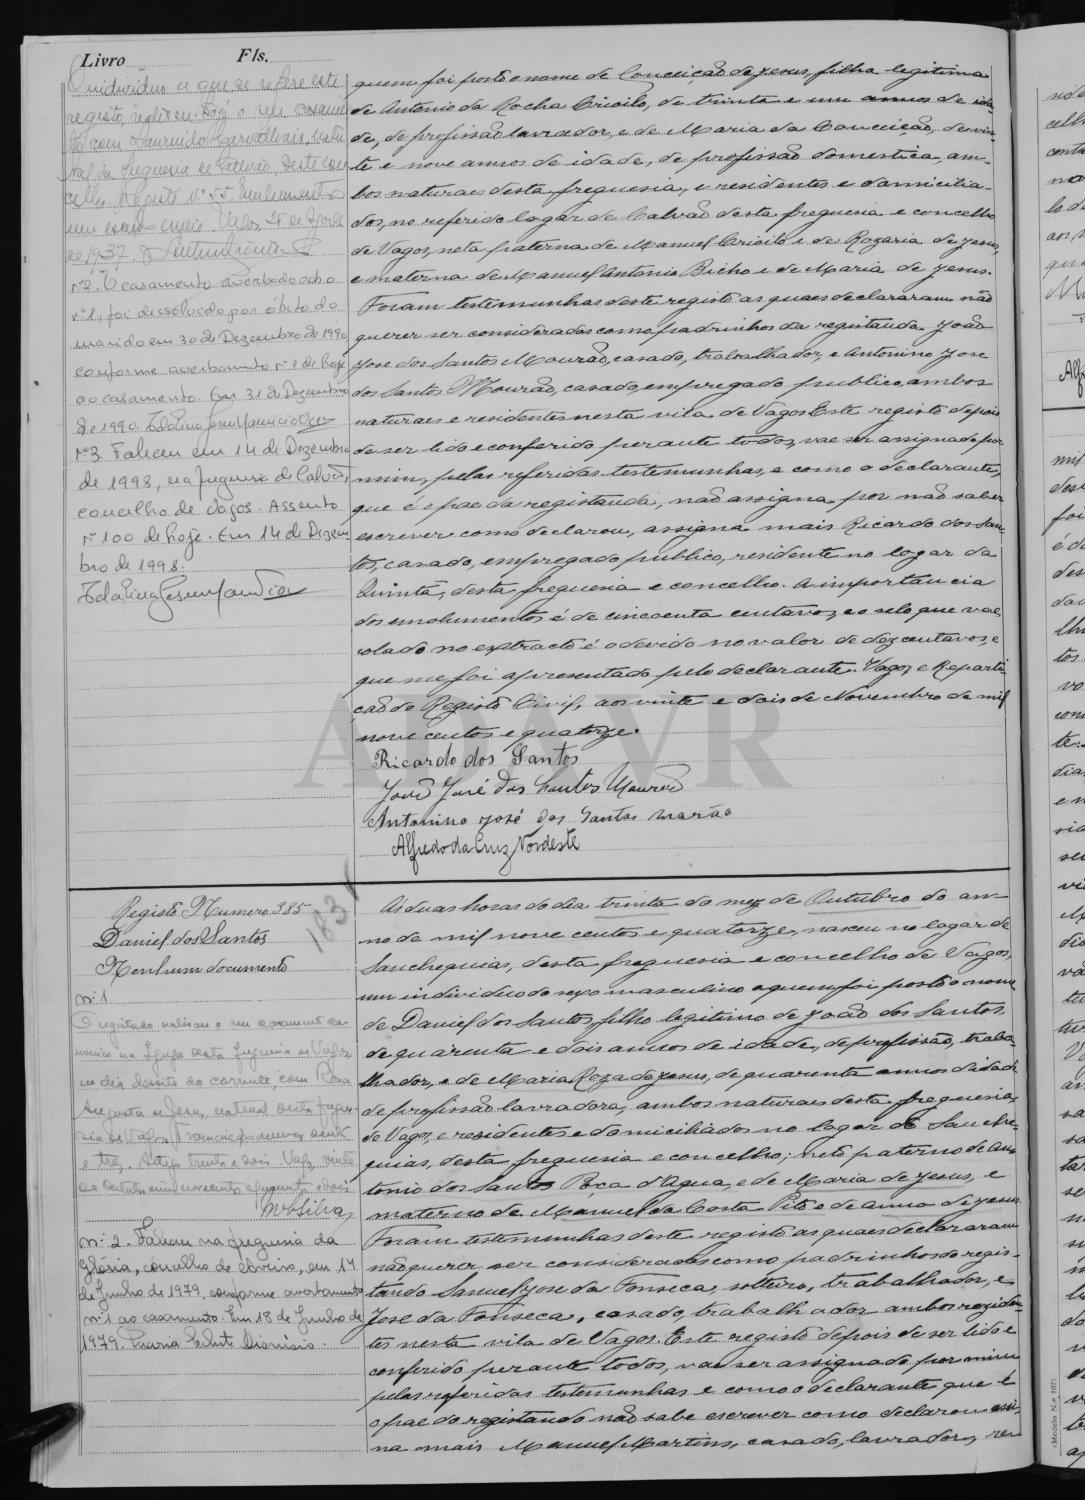 Livro Fls.
O individuo a que se refere este
registo, realizou hoje o seu casamen
to com Laurindo Carvalhais, natu
ral da freguesia de Calvão, deste con
celho. Registo nº 55.
Vagos, 25 de
de 1937.
nº 2. O casamento averbado sob o
nº 1, foi dissolvido por óbito do
marido em 30 de Dezembro de 1990
conforme averbamento nº 1 de hoje
ao casamento. Em 31 de Dezembro
de 1990.
nº 3. Faleceu em 14 de Dezembro
de 1998, na freguesia de Calvão,
concelho de Vagos. Assento
nº 100 de hoje. Em 14 de Dezem
bro de 1998.
quem foi posto o nome de Conceição de Jesus, filha legitima
de Antonio da Rocha Crioilo, de trinta e um annos de ida-
de, de profissão lavrador, e de Maria da Conceição, de vin-
te e nove annos de idade, de profissão domestica, am-
bos naturaes desta freguesia, e residentes e domicilia-
dos, no referido logar de Calvão desta freguesia e concelho
de Vagos, neta paterna de Manuel Crioilo e de Rozaria de Jesus,
e materna de Manuel Antonio Bicho e de Maria de Jesus.
Foram testemunhas deste registo as quaes declararam não
querer ser considerados como padrinhos da registanda João
José dos Santos Mourão, casado, trabalhador, e Antonino José
dos Santos Mourão, casado, empregado publico, ambos
naturaes e residentes nesta vila de Vagos. Este registo depois
de ser lido e conferido perante todos, vae ser assignado por
mim, pelas referidas testemunhas, e como o declarante,
que é o pae da registanda, não assigna por não saber
escrever como declarou, assigna mais Ricardo dos San-
tos, casado, empregado publico, residente no logar da
Quintã, desta freguesia e concelho. A importancia
dos emolumentos é de cincoenta centavos, e o selo que vae
colado no extracto é o devido no valor de dez centavos, e
que me foi apresentado pelo declarante. Vagos, e Reparti-
ção do Registo Civil, aos vinte e dois de Novembro de mil
nove centos e quatorze.
Ricardo dos Santos
João José dos Santos Mourão
Antonino José dos Santos Mourão
Alfredo da Cruz Nordeste
ADAVR
Registo Numero 385
Daniel dos Santos
Nenhum documento
183
nº 1
O registado realizou o seu casamento ca-
nonico na Igreja desta freguesia de Vagos,
no dia do corrente, com Rosa
Augusta de Jesus, natural desta fregue-
sia de Vagos,
e tres. trinta e dois. Vagos, vinte
de novecentos e quarenta e dois.
nº 2. Faleceu na freguesia da
Glória, concelho de Aveiro, em 17
de Junho de 1979, conforme averbamento
nº 1 ao casamento. Em 18 de Junho de
1979.
Ás duas horas do dia trinta do mez de Outubro do an-
no de mil nove centos e quatorze, nasceu no logar de
Sanchequias, desta freguesia e concelho de Vagos,
um individuo do sexo masculino a quem foi posto o nome
de Daniel dos Santos, filho legitimo de João dos Santos
de quarenta e dois annos de idade, de profissão, traba-
lhador, e de Maria Roza de Jesus, de quarenta annos d'idade
de profissão lavradora, ambos naturaes desta freguesia,
de Vagos, e residentes e domiciliados no logar de Sanche-
quias, desta freguesia e concelho; neto paterno de An-
tonio dos Santos Boca d'agua, e de Maria de Jesus, e
materno de Manuel da Costa Pito e de Anna de Jesus
Foram testemunhas deste registo as quaes declararam
não querer ser considerados como padrinhos do regis-
tando Samuel José da Fonseca, solteiro, trabalhador, e
José da Fonseca, casado, trabalhador ambos residen-
tes nesta vila de Vagos. Este registo depois de ser lido e
conferido perante todos, vae ser assignado por mim
pelas referidas testemunhas e como o declarante que é
o pae do registando não sabe escrever como declarou assi-
na mais Manuel Martins, casado, lavrador, res